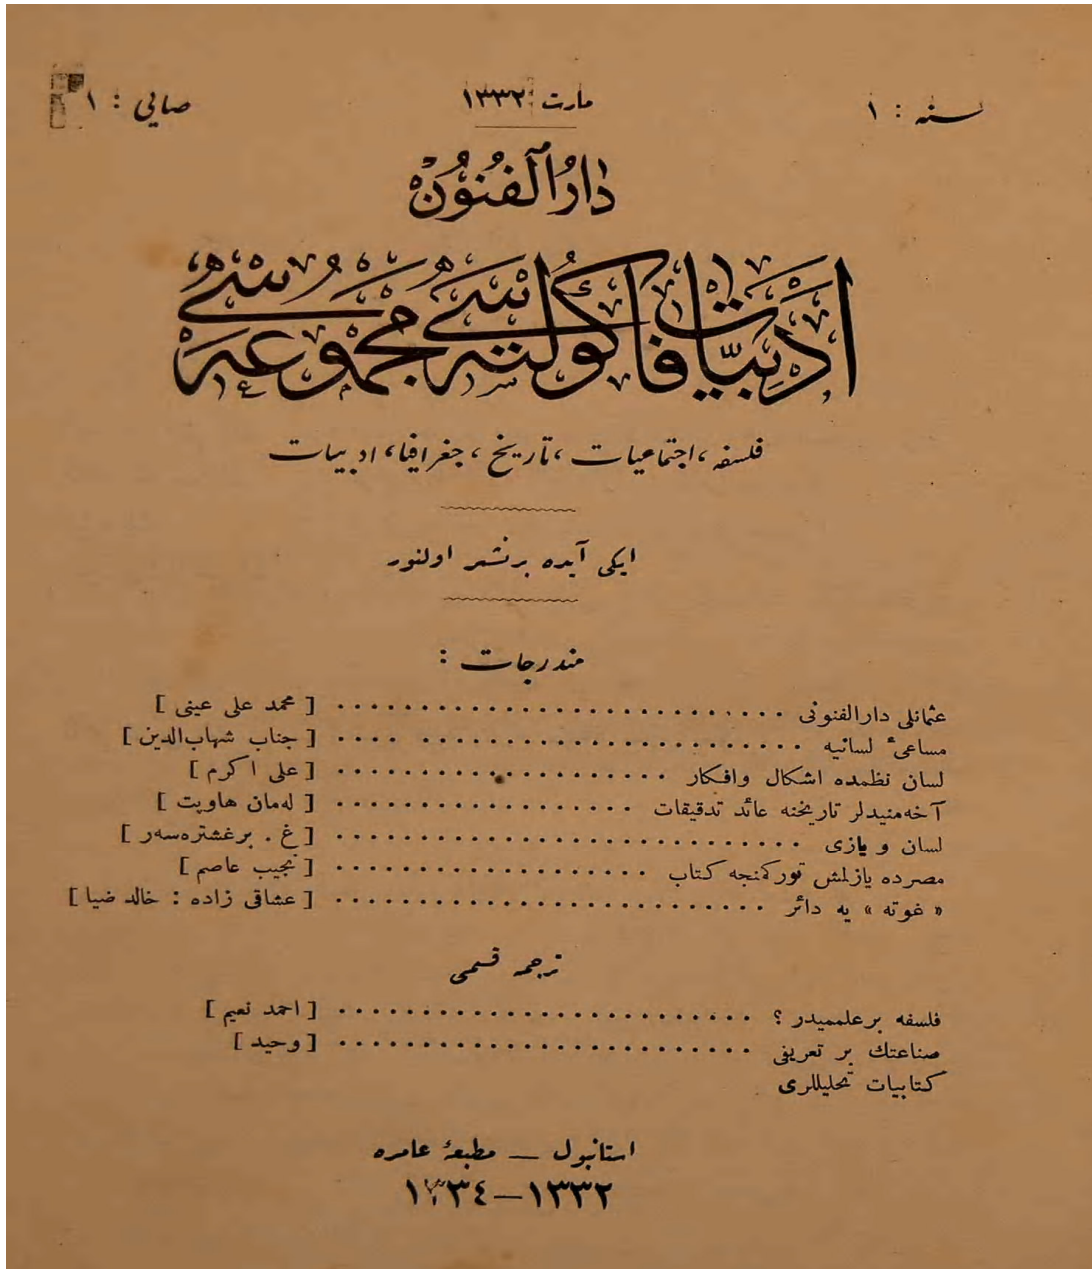 سنه : ١ مارت ١٣٣٢ صايی : ١
دارُالفُنُون
ادبيّات فاكُولته‌سى مجموعه‌سى
فلسفه ، اجتماعيات ، تاريخ ، جغرافيا ، ادبيات
ايكى آيده بر نشر اولنور
مندرجات :
عثمانلى دارالفنونى [ محمد على عينى ]
مساعىٔ لسانيه [ جناب شهاب‌الدين ]
لسان نظمده اشكال وافكار [ على اكرم ]
آخه‌منيدلر تاريخنه عائد تدقيقات [ له‌مان هاوپت ]
لسان و يازى [ غ . برغشتره‌سه‌ر ]
مصرده يازلمش توركمنجه كتاب [ نجيب عاصم ]
« غوته » يه دائر [ عشاقى زاده : خالد ضيا ]
ترجمه قسمى
فلسفه بر علمميدر ؟ [ احمد نعيم ]
صناعتك بر تعريفى [ وحيد ]
كتابيات تحليللرى
استانبول — مطبعهٔ عامره
١٣٣٢—١٣٣٤